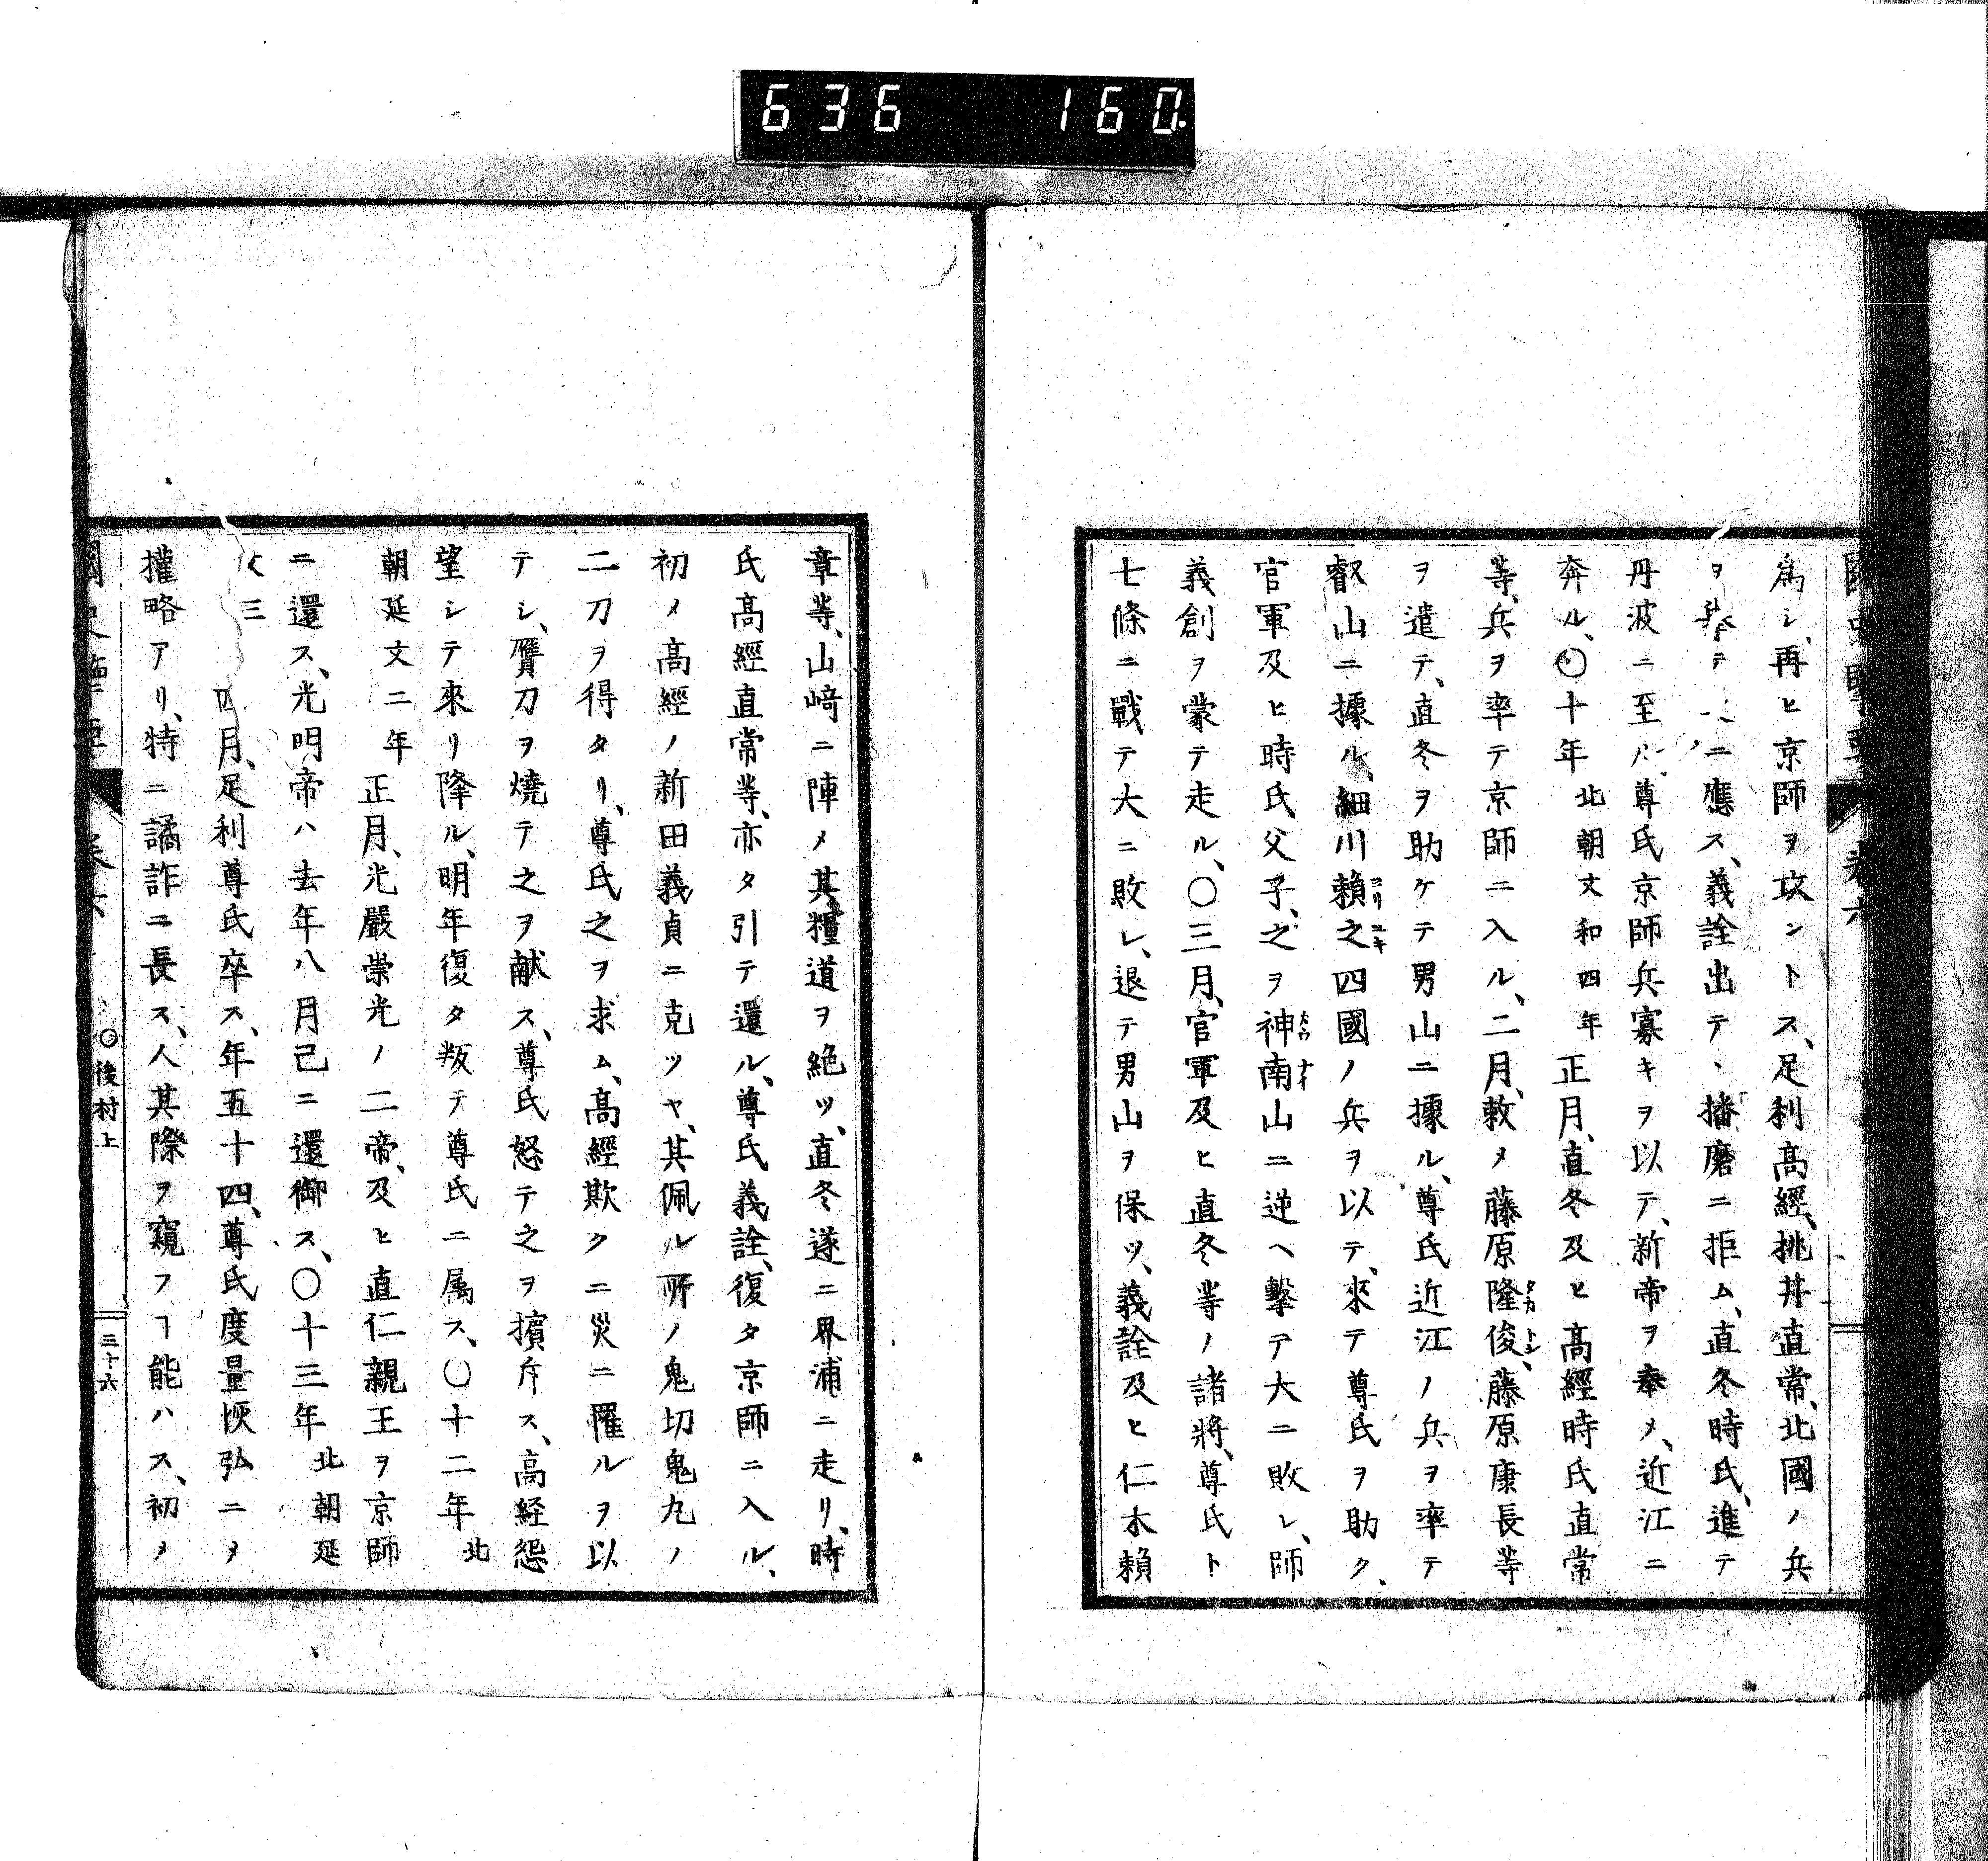 636 160.
爲シ、再ヒ京師ヲ攻ントス、足利高經、桃井直常、北國ノ兵
ヲ率テニ應ス、義詮出テ、播磨ニ拒ム、直冬時氏、進テ
丹波ニ至ル、尊氏京師兵寡キヲ以テ、新帝ヲ奉メ、近江ニ
奔ル、〇十年北朝文和四年正月、直冬及ヒ高經時氏直常
等、兵ヲ率テ京師ニ入ル、二月、敕メ藤原隆俊、藤原康長等
ヲ遣テ、直冬ヲ助ケテ男山ニ據ル、尊氏近江ノ兵ヲ率テ
叡山ニ據ル、細川賴之四國ノ兵ヲ以テ、來テ尊氏ヲ助ク、
官軍及ヒ時氏父子、之ヲ神南山ニ逆ヘ擊テ大ニ敗レ、師
義創ヲ蒙テ走ル、〇三月、官軍及ヒ直冬等ノ諸將、尊氏ト
七條ニ戰テ大ニ敗レ、退テ男山ヲ保ツ、義詮及ヒ仁木賴
章等、山﨑ニ陣メ其糧道ヲ絶ツ、直冬遂ニ界浦ニ走リ、時
氏高經直常等、亦タ引テ還ル、尊氏義詮、復タ京師ニ入ル、
初メ高經ノ新田義貞ニ克ツヤ、其佩ル所ノ鬼切鬼丸ノ
二刀ヲ得タリ、尊氏之ヲ求ム、高經欺クニ災ニ罹ルヲ以
テシ、贋刀ヲ燒テ之ヲ献ス、尊氏怒テ之ヲ擯斥ス、高経怨
望シテ來リ降ル、明年復タ叛テ尊氏ニ属ス、〇十二年北
朝延文二年正月、光嚴崇光ノ二帝、及ヒ直仁親王ヲ京師
ニ還ス、光明帝ハ去年八月己ニ還御ス、〇十三年北朝延
文三四月、足利尊氏卒ス、年五十四、尊氏度量恢弘ニメ
權略アリ、特ニ譎詐ニ長ス、人其際ヲ窺フヿ能ハス、初メ
卷六 〇後村上 三十六